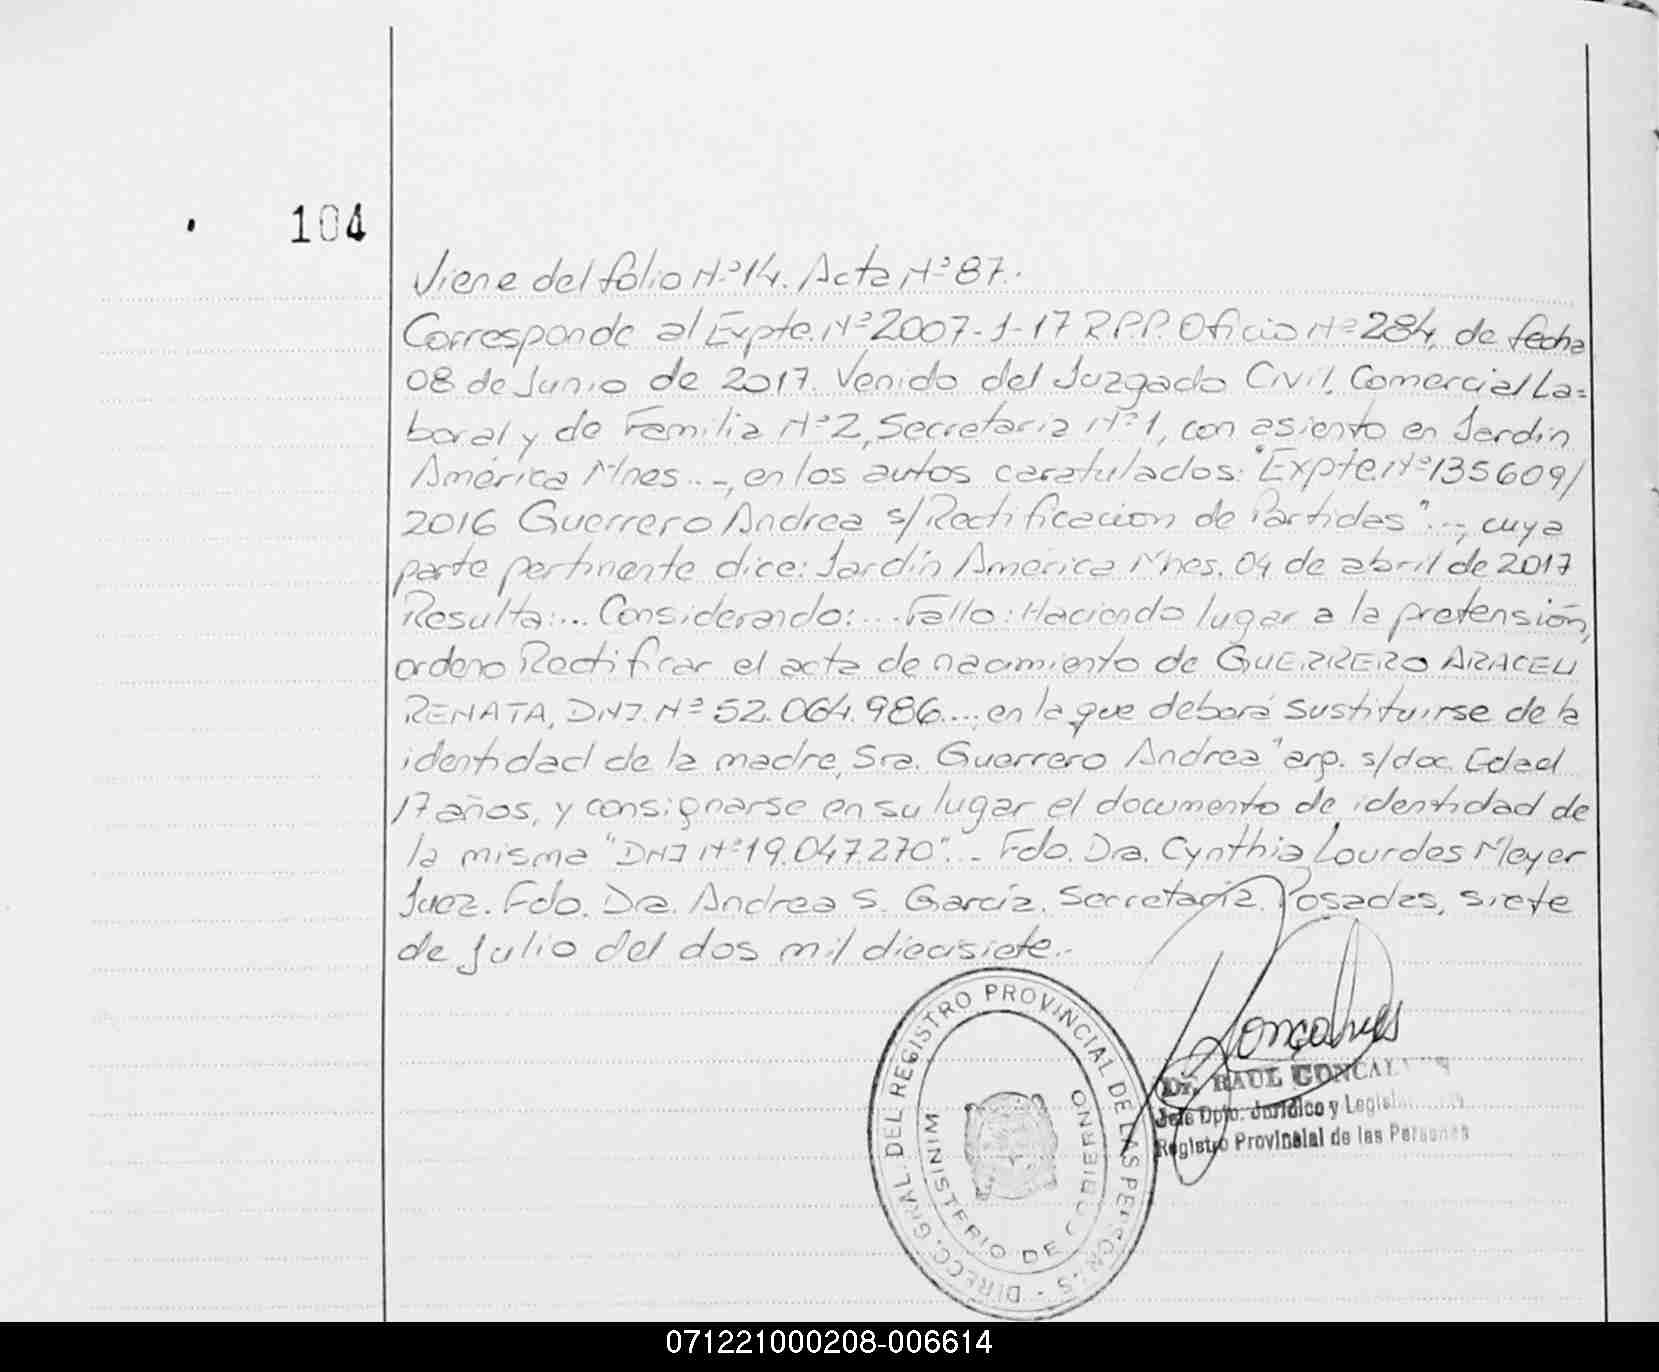 104
Viene del folio Nº 14. Acta Nº 87.
Corresponde al Expte. Nº 2007-1-17 R.P.P. Oficio Nº 284, de fecha
08 de Junio de 2017. Venido del Juzgado Civil, Comercial La=
boral y de Familia Nº 2, Secretaria Nº 1, con asiento en Jardín
América Mnes...-, en los autos caratulados: "Expte. Nº 135609/
2016 Guerrero Andrea s/Rectificacion de Partidas"...-, cuya
parte pertinente dice: Jardín América Mnes. 04 de abril de 2017
Resulta:... Considerando:... Fallo: Haciendo lugar a la pretensión,
ordeno Rectificar el acta de nacimiento de GUERRERO ARACELI
RENATA, DNI. Nº 52.064.986..., en la que deberá sustituirse de la
identidad de la madre, Sra. Guerrero Andrea "arg. s/doc. Edad
17 años, y consignarse en su lugar el documento de identidad de
la misma "DNI Nº 19.047.270"... Fdo. Dra. Cynthia Lourdes Meyer
Juez. Fdo. Dra. Andrea S. García. Secretaria. Posadas, siete
de Julio del dos mil diecisiete.-
DIRECC. GRAL. DEL REGISTRO PROVINCIAL DE LAS PERSONAS -
MINISTERIO DE GOBIERNO
Goncalves
Dr. RAUL GONCALV
Jefe Dpto. Jurídico y Legisla
Registro Provincial de las Personas
071221000208-006614